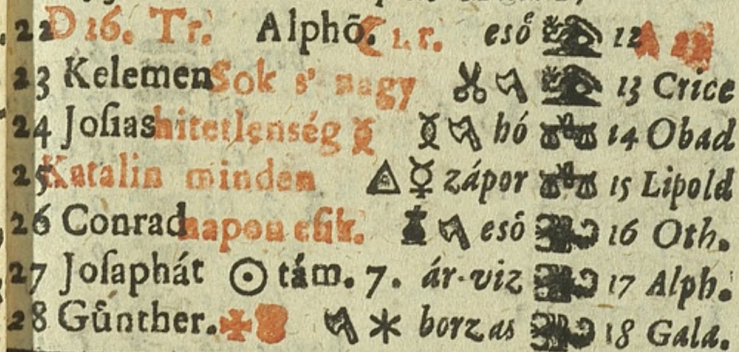 22 D 26. Tr. Alphõ. ☾ 1. r. eső 12 A 22
23 Kelemen Sok s' nagy 13 Crice
24 Joſias hitetlenség hó 14 Obad
25 Katalin minden ☿ zápor 15 Lipold
26 Conrad napon eſik. eső 16 Oth.
27 Joſaphát ☉ tám. 7. ár-viz 17 Alph.
28 Gűnther. ✠ borzas 18 Gala.